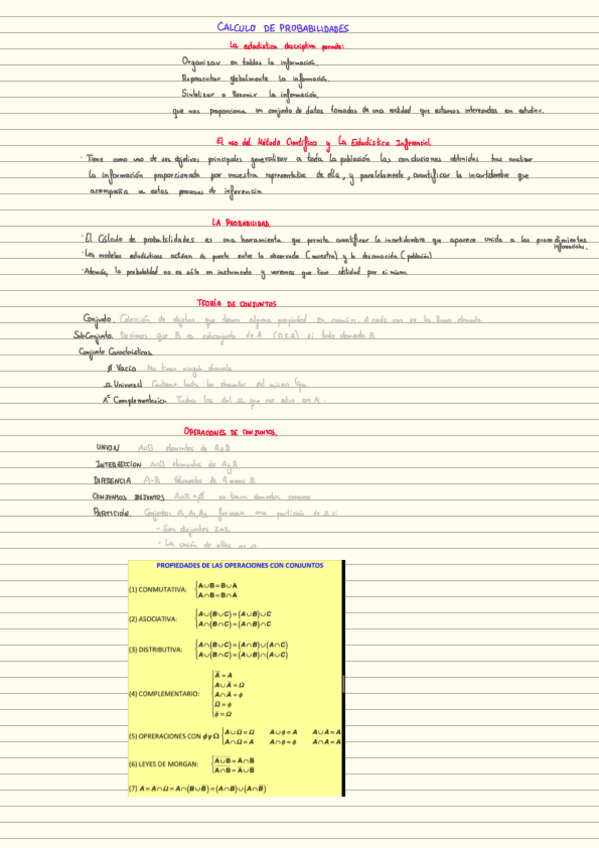 CALCULO DE PROBABILIDADES
La estadística descriptiva permite:
Organizar en tablas la información.
Representar globalmente la información.
Sintetizar o Resumir la información.
que nos proporciona un conjunto de datos tomados de una entidad que estamos interesados en estudiar.
El uso del Método Científico y La Estadística Inferencial.
- Tiene como uno de sus objetivos principales generalizar a toda la población las conclusiones obtenidas tras analizar
la información proporcionada por muestra representativa de ella, y paralelamente, cuantificar la incertidumbre que
acompaña a estos procesos de inferencia
LA PROBABILIDAD.
- El Cálculo de probabilidades es una herramienta que permite cuantificar la incertidumbre que aparece unida a los procedimientos
inferenciales.
- Los modelos estadísticos actúan de puente entre lo observado (muestra) y lo desconocido (población)
- Además, la probabilidad no es sólo un instrumento y veremos que tiene utilidad por sí misma.
TEORÍA DE CONJUNTOS
Conjunto. Colección de objetos que tienen alguna propiedad en común. A cada uno se le llama elemento.
SubConjunto. Decimos que B es subconjunto de A (B⊆A) si todo elemento B
Conjunto Característicos
∅ Vacío No tiene ningún elemento
Ω Universal Contiene todos los elementos del mismo tipo
Aᶜ Complementario Todos los del Ω que no están en A.
OPERACIONES DE CONJUNTOS.
UNIÓN A∪B elementos de A o B
INTERSECCIÓN A∩B elementos de A y B
DIFERENCIA A-B Elementos de A menos B
CONJUNTOS DISJUNTOS A∩B=∅ no tienen elementos comunes
PARTICIÓN. Conjuntos A₁ A₂ Aₙ forman una partición de Ω si
- Son disjuntos 2a2
- La unión de ellos es Ω
PROPIEDADES DE LAS OPERACIONES CON CONJUNTOS
(1) CONMUTATIVA: A∪B=B∪A
A∩B=B∩A
(2) ASOCIATIVA: A∪(B∪C)=(A∪B)∪C
A∩(B∩C)=(A∩B)∩C
(3) DISTRIBUTIVA: A∩(B∪C)=(A∩B)∪(A∩C)
A∪(B∩C)=(A∪B)∩(A∪C)
(4) COMPLEMENTARIO: A̿=A
A∪A̅=Ω
A∩A̅=ϕ
Ω̅=ϕ
ϕ̅=Ω
(5) OPRERACIONES CON ϕ y Ω A∪Ω=Ω A∪ϕ=A A∪A=A
A∩Ω=A A∩ϕ=ϕ A∩A=A
(6) LEYES DE MORGAN: A̅∪̅B̅=A̅∩B̅
A̅∩̅B̅=A̅∪B̅
(7) A=A∩Ω=A∩(B∪B̅)=(A∩B)∪(A∩B̅)